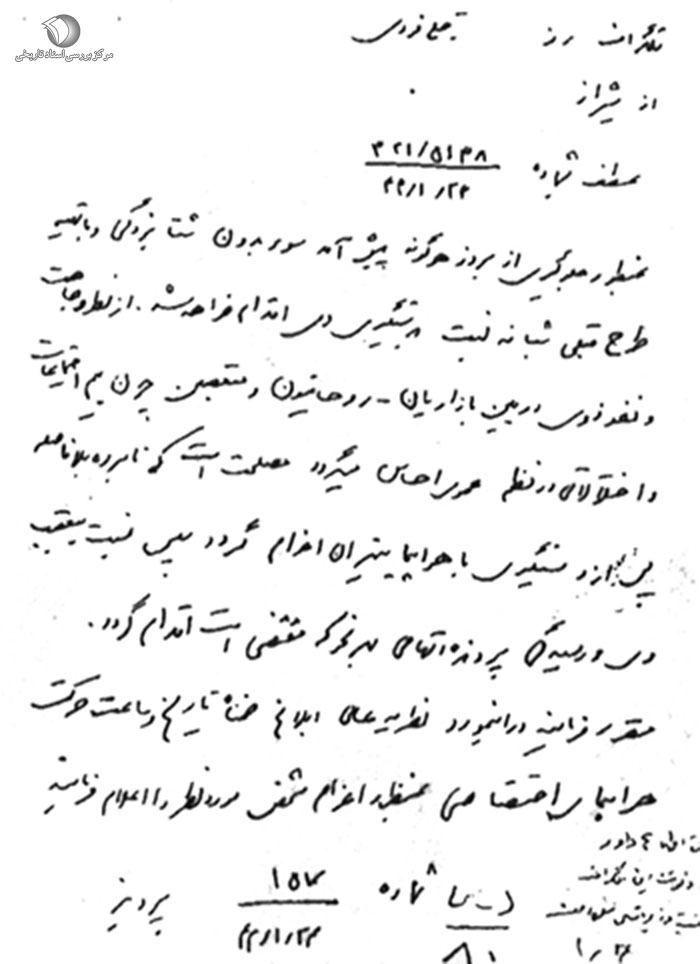 مرکز بررسی اسناد تاریخی
تلگراف رمز
از شیراز
عطف شماره ۳۲۱/۵۱۳۸
۴۲/۱/۲۳
بمنظور جلوگیری از بروز هرگونه پیش آمد سوء بدون شتابزدگی و با تهیه
طرح قبلی شبانه نسبت بدستگیری وی اقدام خواهد شد. از نظر وجاهت
و نفوذ وی در بین بازاریان - روحانیون و متعصبین چون بیم اجتماعات
و اختلالاتی در نظم عمومی احساس میگردد مصلحت است که نامبرده بلافاصله
پس از دستگیری با هواپیما بتهران اعزام گردد سپس نسبت بتعقیب
وی و رسیدگی پرونده اتهامی بهر نحو که مقتضی است اقدام گردد.
مقرر فرمایند در اینمورد نظریه عالی ابلاغ ضمناً تاریخ و ساعت حرکت
هواپیمای اختصاصی بمنظور اعزام شخص مورد نظر را اعلام فرمایند
شماره
۴۲/۱/۲۴